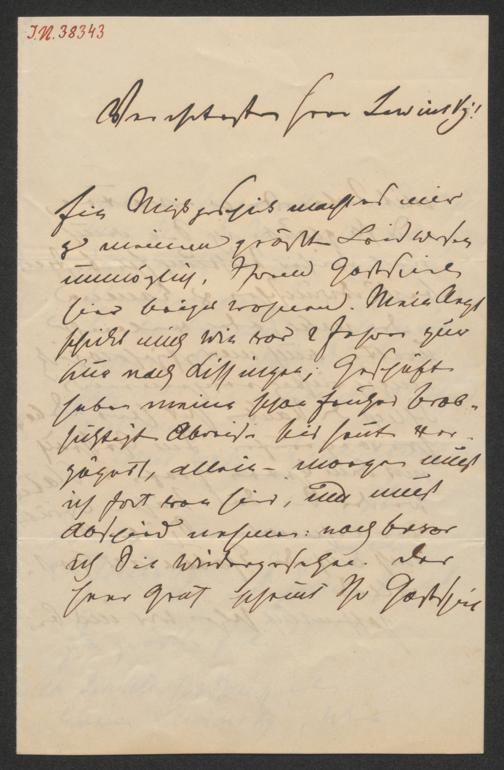 J.N. 38343
Verehrtester Herr Lewinsky!
Ein Mißgeschick macht es mir
zu meinem größten Leidwesen
unmöglich, Ihrem Gastspiele
hier beizuwohnen. Mein Arzt
schickt mich wie vor 2 Jahren zur
Kur nach Kissingen; Geschäfte
haben meine schon früher beab-
sichtigte Abreise bis heute ver-
zögert, allein – morgen muß
ich fort von hier, und muß
Abschied nehmen: noch bevor
ich Sie wiedergesehen. Der
Herr Graf scheint Ihr Gastspiel